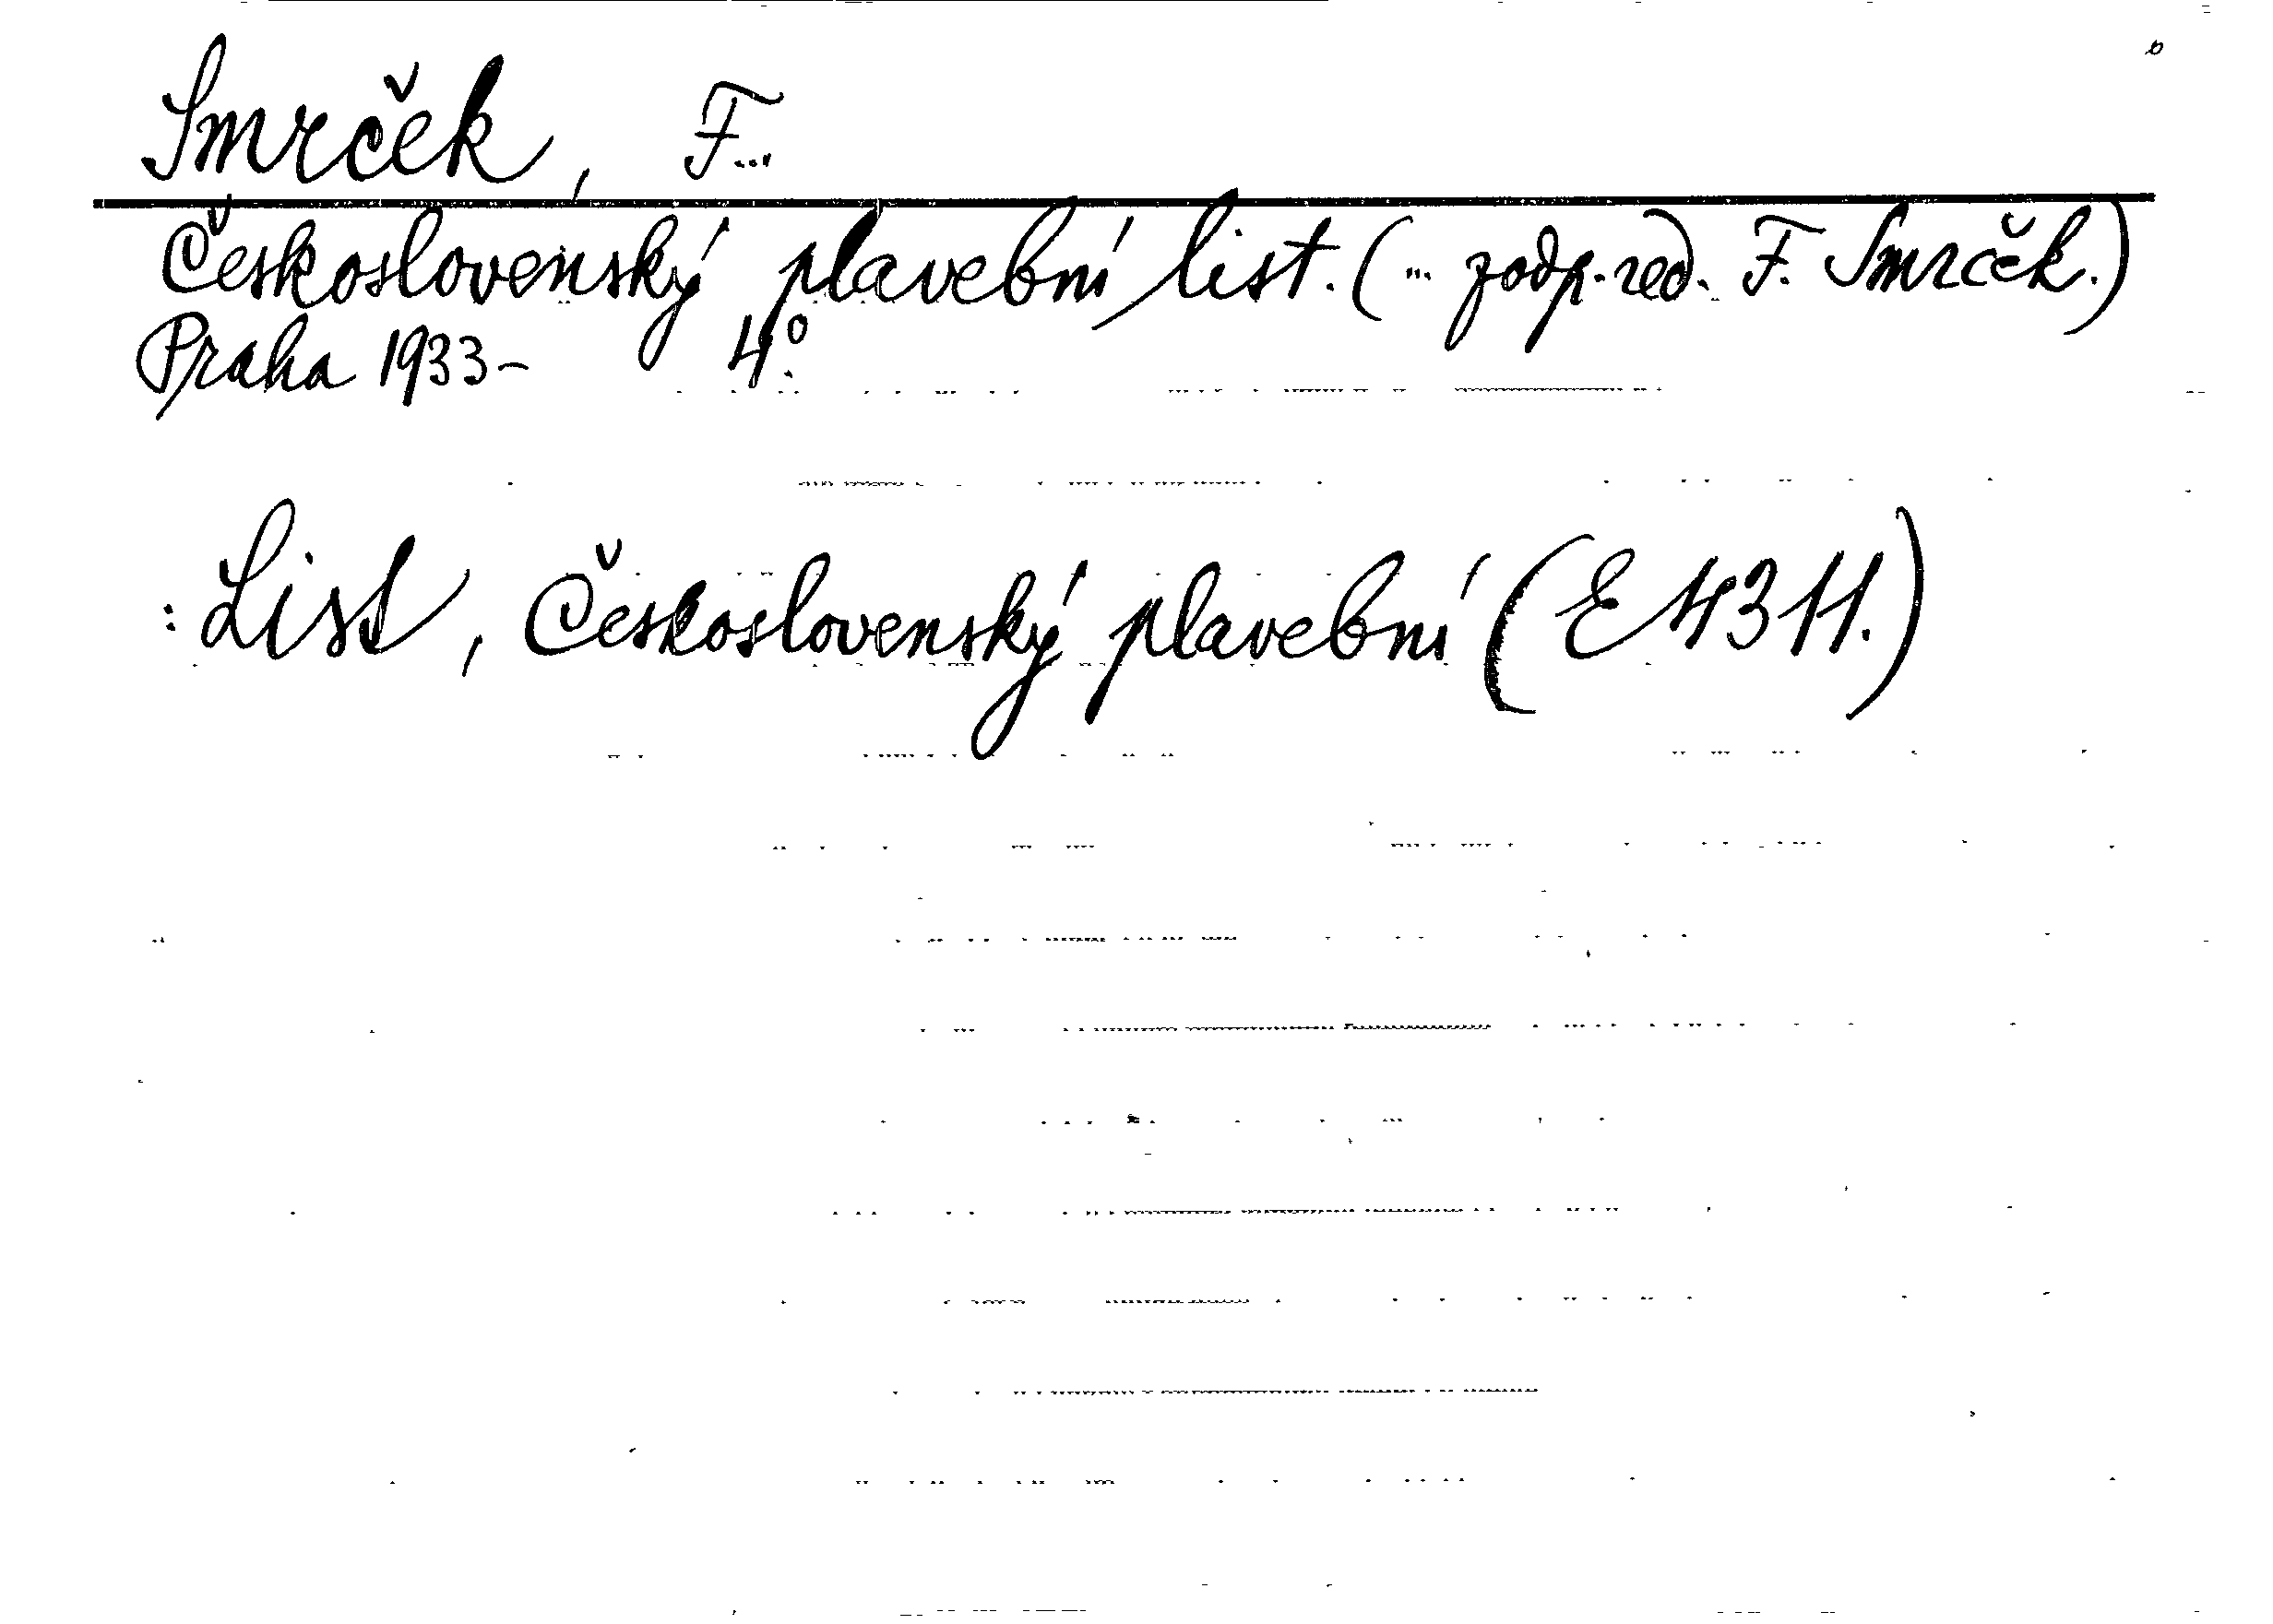 Smrček, F...
Československý plavební list. (... zodp. red. F. Smrček.)
Praha 1933- 4°.
: List, Československý plavební (E 4311.)